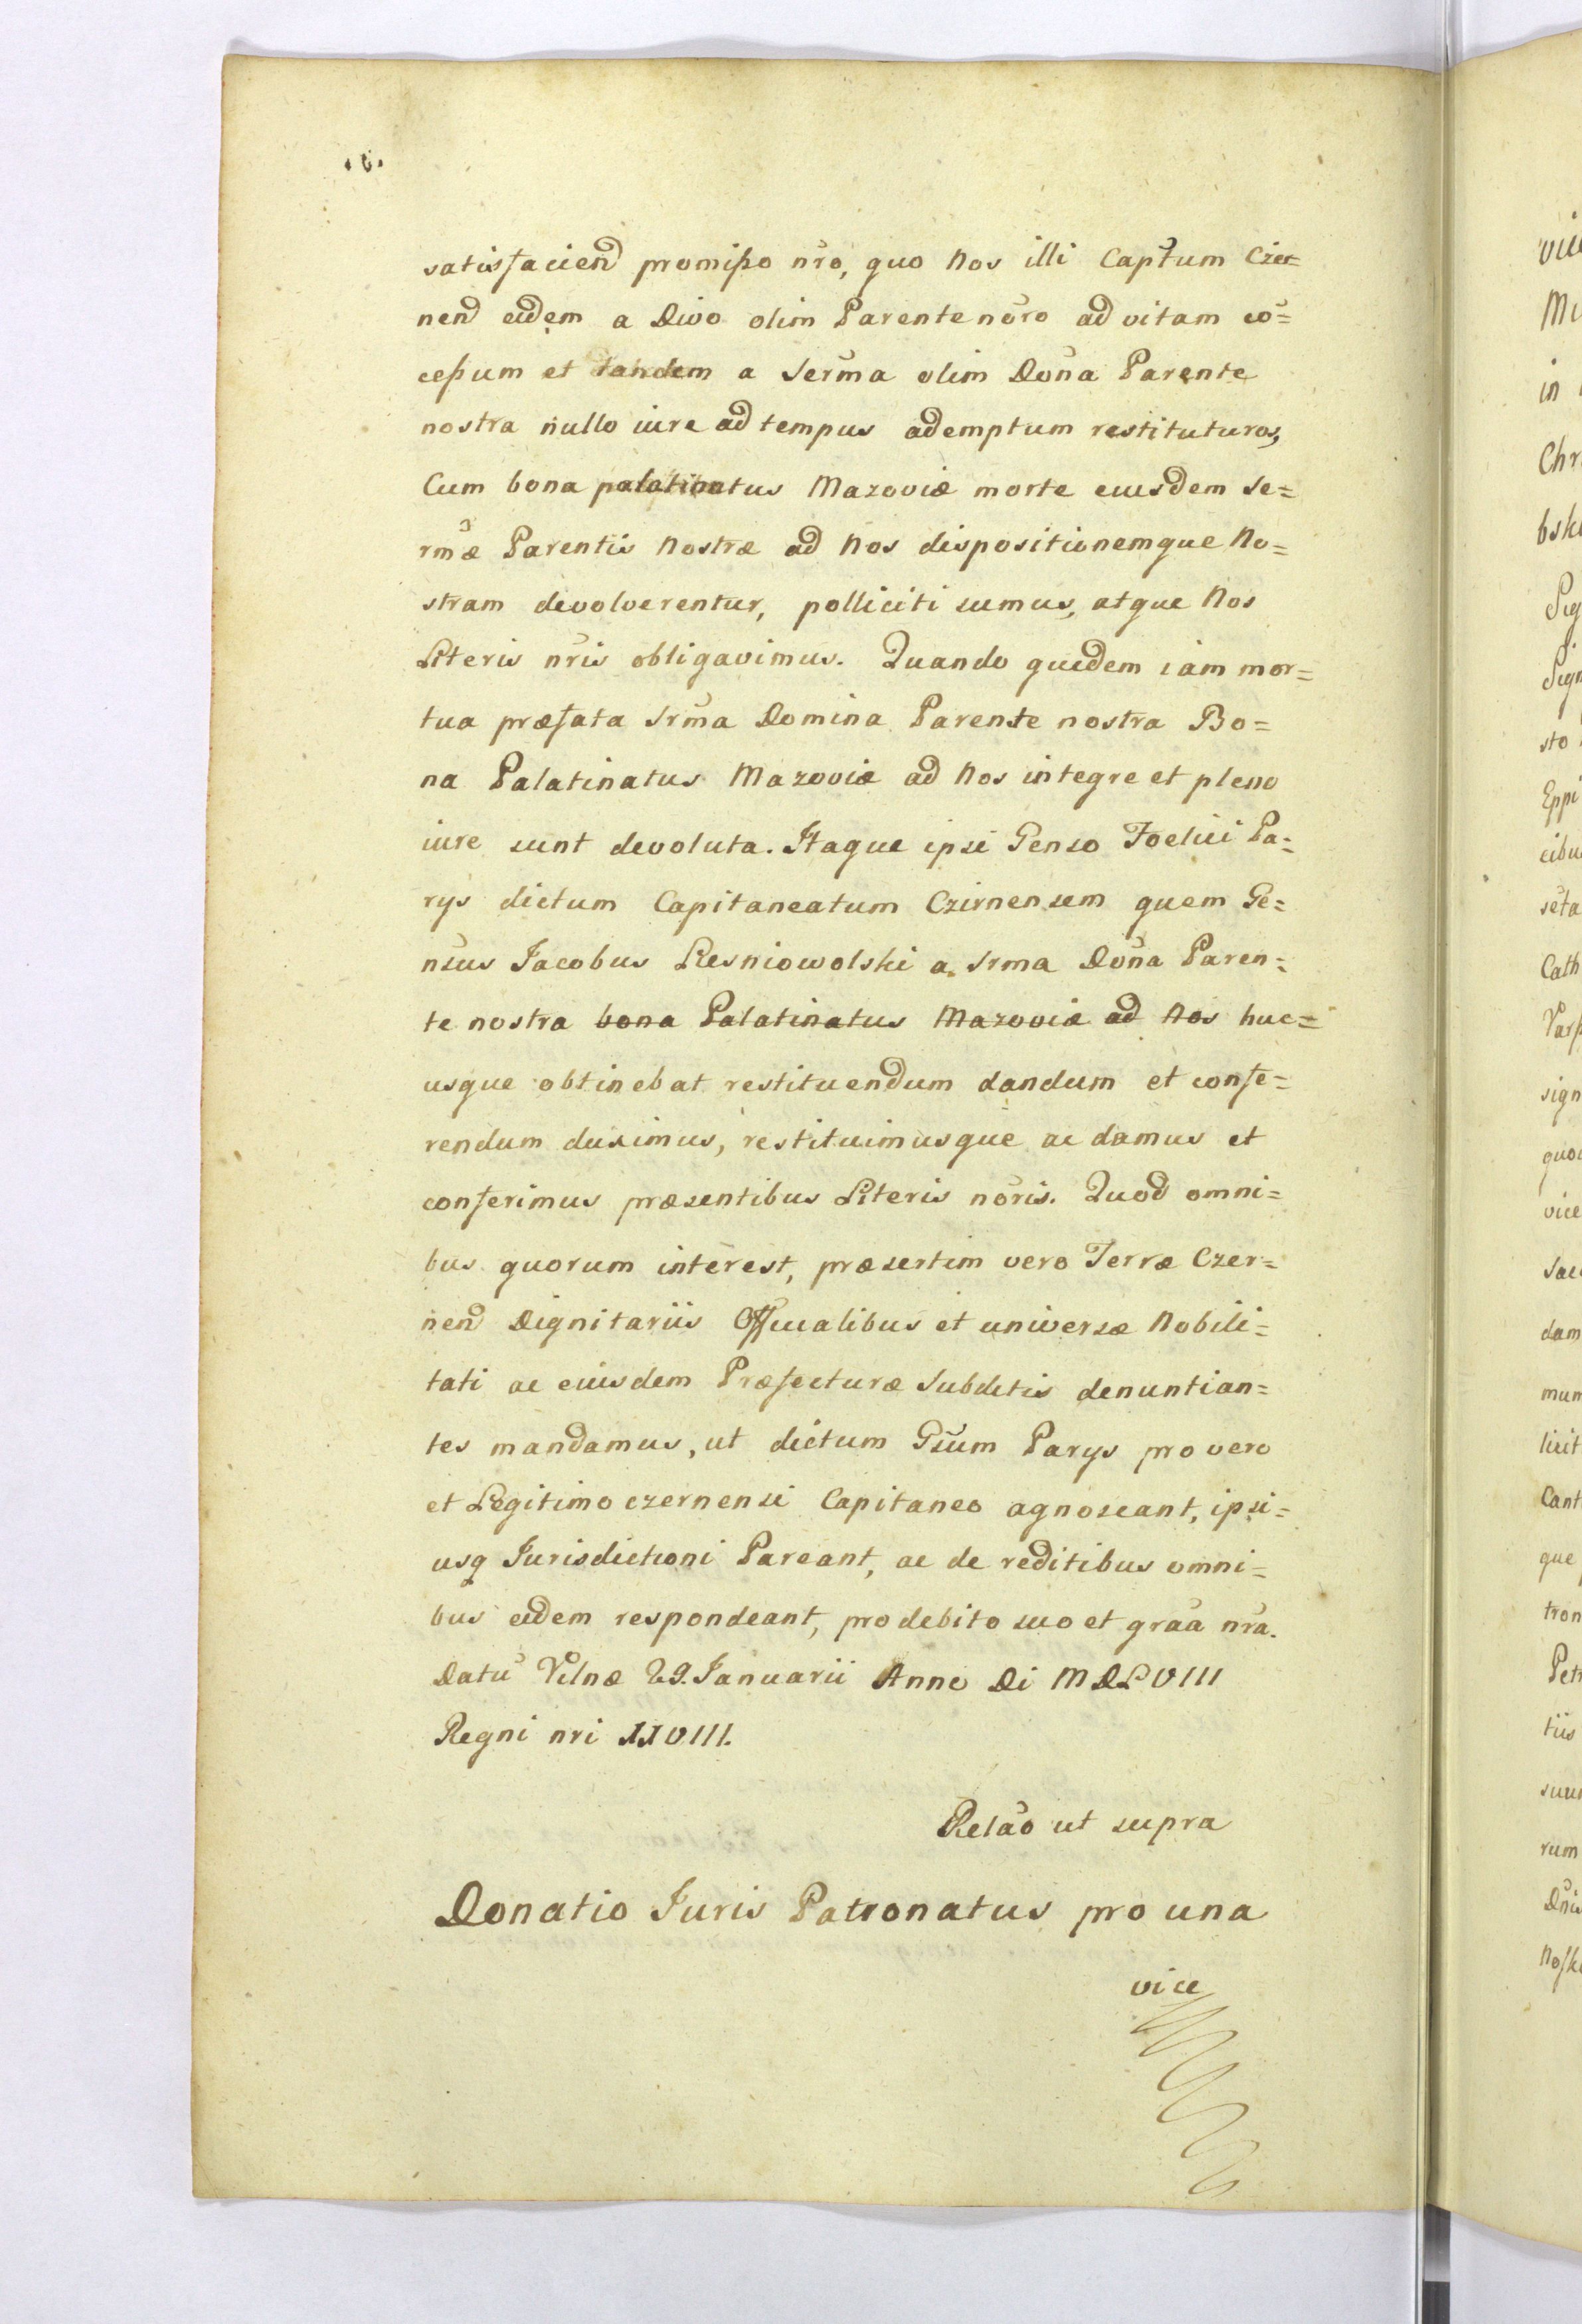 satisfaciend promisso nro, quo Nos illi Captum Czer=
nend eidem a Divo olim Parente nostro ad vitam co=
cessum et tandem a Serma olim Dona Parente
nostra nullo iure ad tempus ademptum restituturos,
Cum bona palatinatus Mazoviæ morte eiusdem Se=
rmæ Parentis Nostræ ad Nos dispositionemque No=
stram devolverentur, polliciti sumus, atque Nos
Literis nris obligavimus. Quando quidem iam mor=
tua præfata Srma Domina Parente nostra Bo=
na Palatinatus Mazoviæ ad Nos integre et pleno
iure sunt devoluta. Itaque ipsi Genso Foelici Pa=
rys dictum Capitaneatum Czirnensem quem Ge=
nsus Jacobus Lesniowolski a Srma Dona Paren=
te nostra bona Palatinatus Mazoviæ ad Nos huc=
usque obtinebat restituendum dandum et confe=
rendum duximus, restituimusque ac damus et
conferimus præsentibus Literis noris. Quod omni=
bus quorum interest, præsertim vero Terræ Czer=
nend Dignitariis Officialibus et universæ Nobili=
tati ac eiusdem Præfecturæ Subditis denuntian=
tes mandamus, ut dictum Gsum Parys pro vero
et Legitimo czernensi Capitaneo agnoscant, ipsi=
usq Jurisdictioni Pareant, ac de reditibus omni=
bus eidem respondeant, pro debito suo et graa nra.
Datu Vilnæ 29. Januarii Anno Di MDLVIII
Regni nri XXVIII.
Relao ut supra
Donatio Juris Patronatus pro una
vice